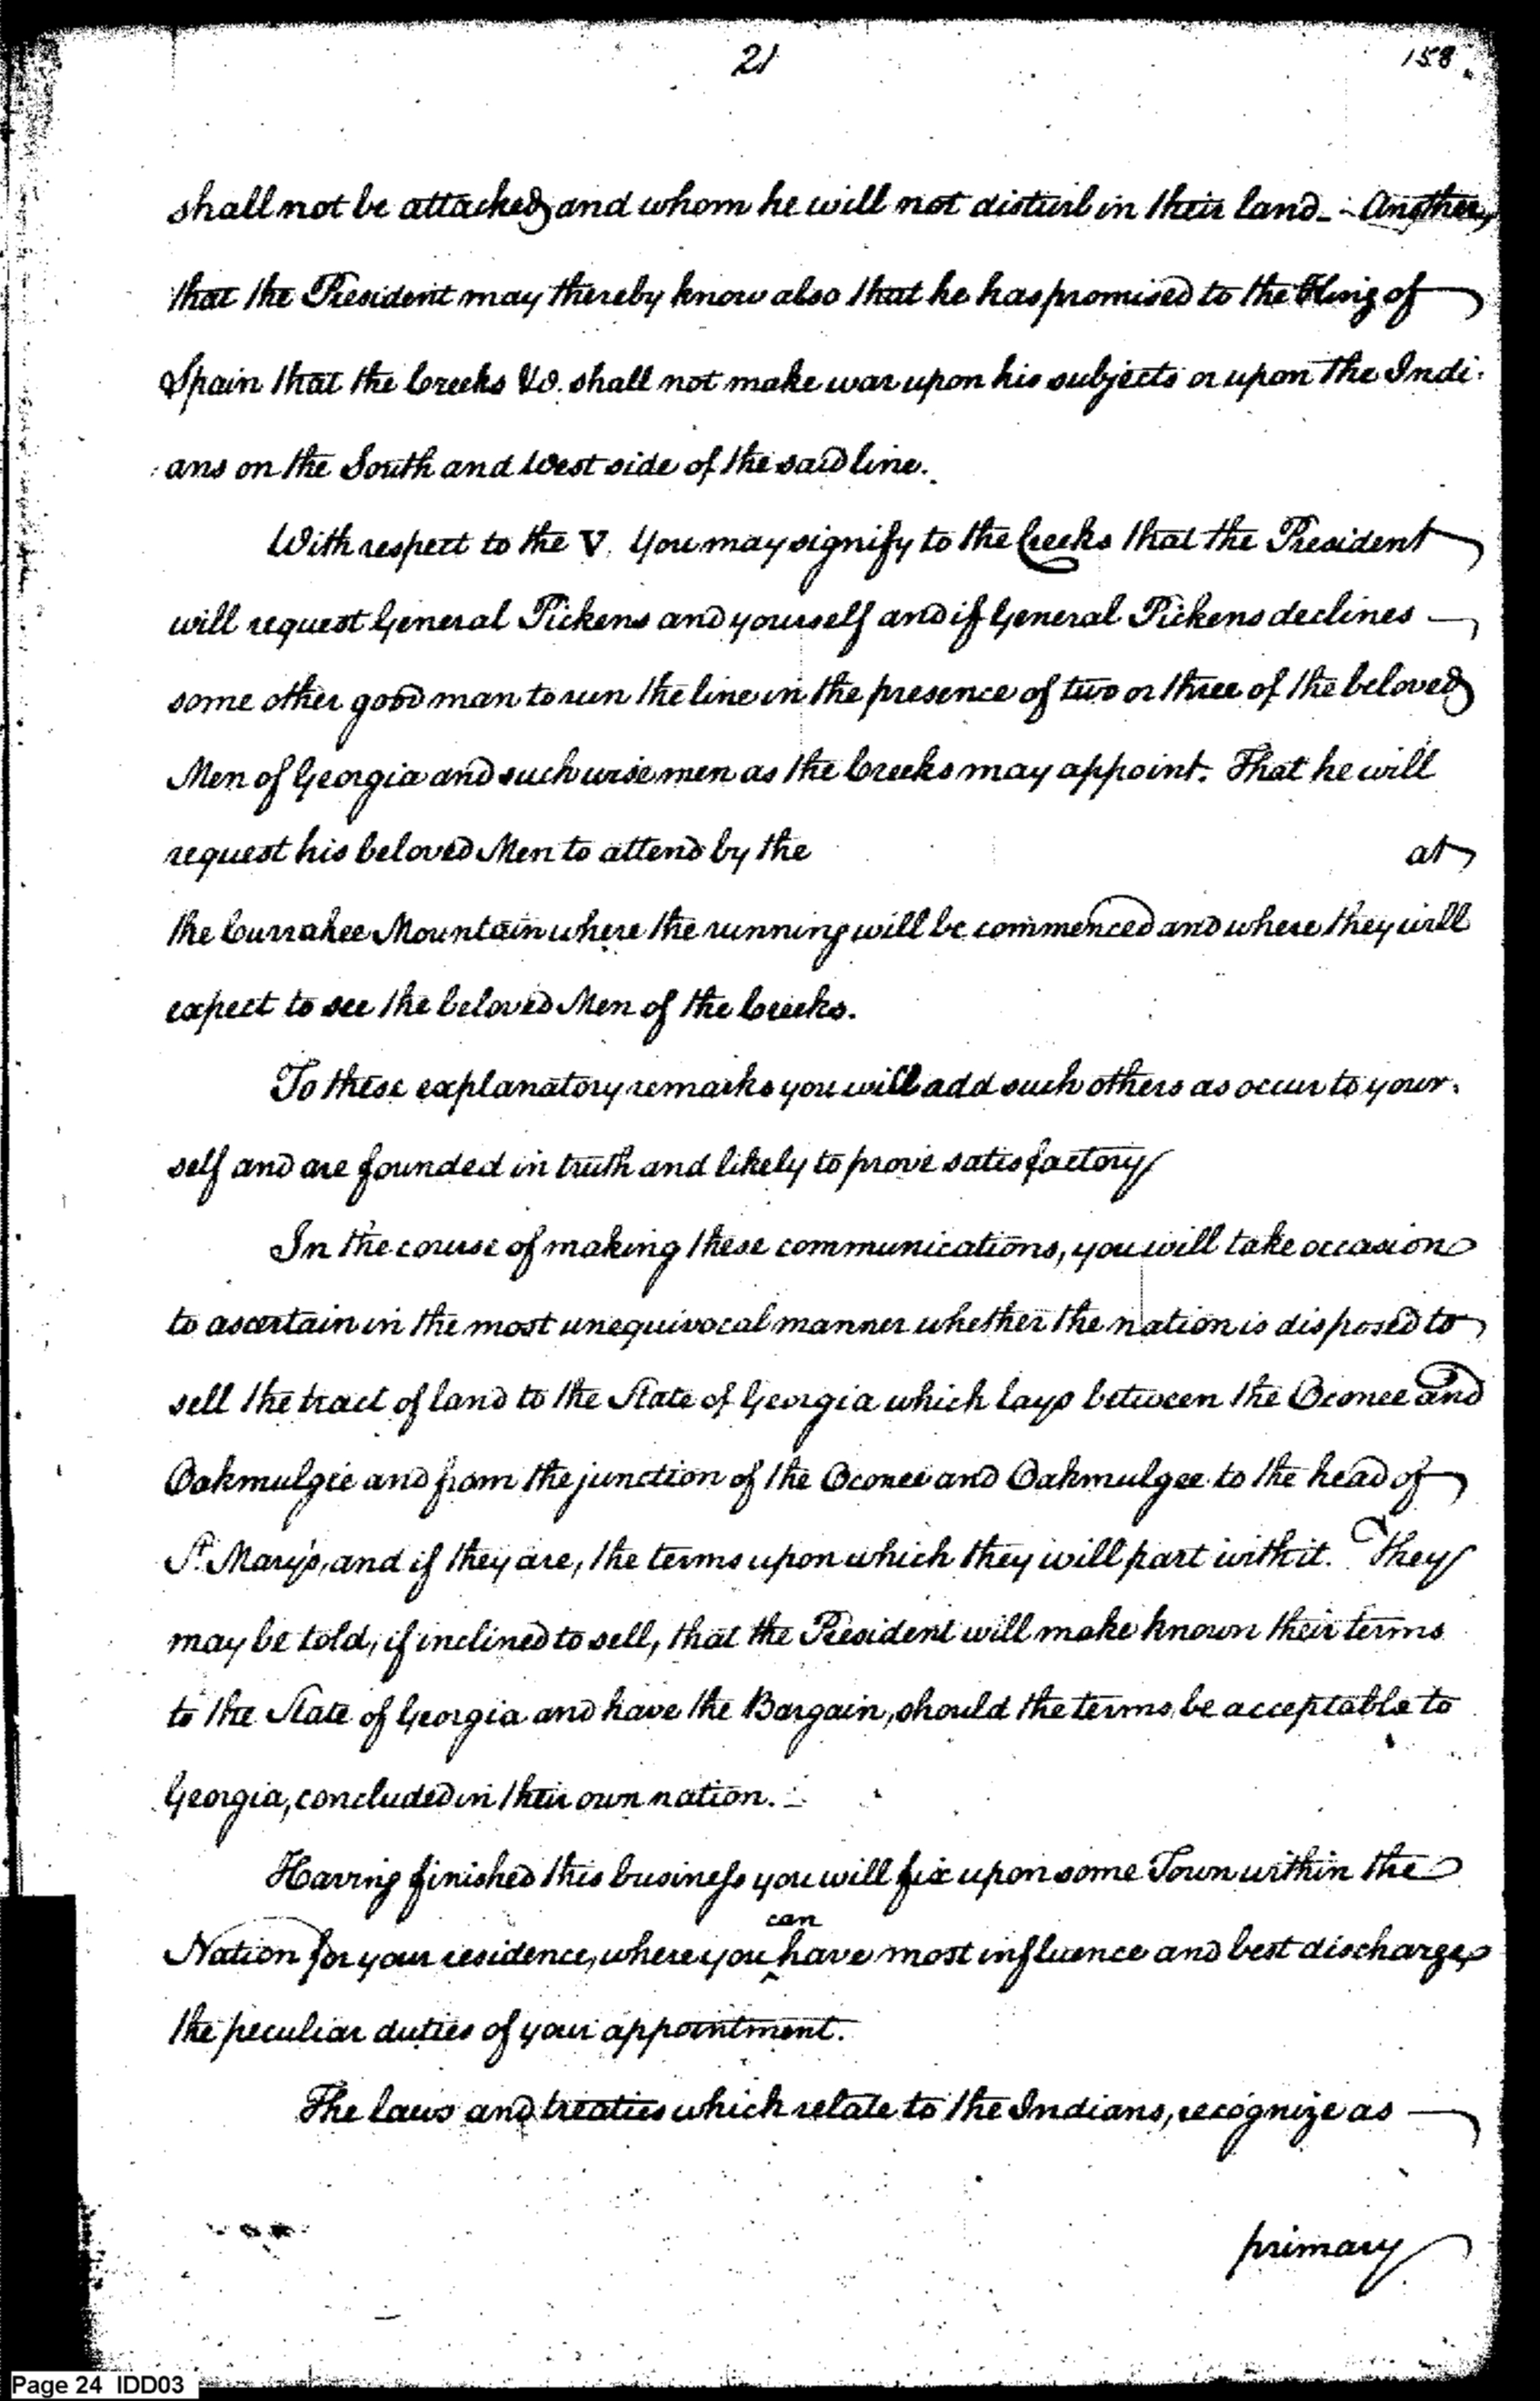 21
158
shall not be attacked and whom he will not disturb in their land_ . Another,
that the President may thereby know also that he has promised to the King of
Spain that the Creeks &c. shall not make war upon his subjects or upon the Indi-
ans on the South and West side of the said line.
With respect to the V. You may signify to the Creeks that the President
will request General Pickens and yourself and if General Pickens declines
some other good man to run the line in the presence of two or three of the beloved
Men of Georgia and such wise men as the Creeks may appoint. That he will
request his beloved Men to attend by the at
the Currahee Mountain where the running will be commenced and where they will
expect to see the beloved Men of the Creeks.
To these explanatory remarks you will add such others as occur to your-
self and are founded in truth and likely to prove satisfactory
In the course of making these communications, you will take occasion
to ascertain in the most unequivocal manner whether the nation is disposed to
sell the tract of land to the State of Georgia which lays between the Oconee and
Oakmulgie and from the junction of the Oconee and Oakmulgee to the head of
St. Mary's, and if they are, the terms upon which they will part with it. They
may be told, if inclined to sell, that the President will make known their terms
to the State of Georgia and have the Bargain, should the terms be acceptable to
Georgia, concluded in their own nation. _
Having finished this business you will fix upon some Town within the
Nation for your residence, where you can have most influence and best discharge
the peculiar duties of your appointment.
The laws and treaties which relate to the Indians, recognize as
primary
Page 24 IDD03